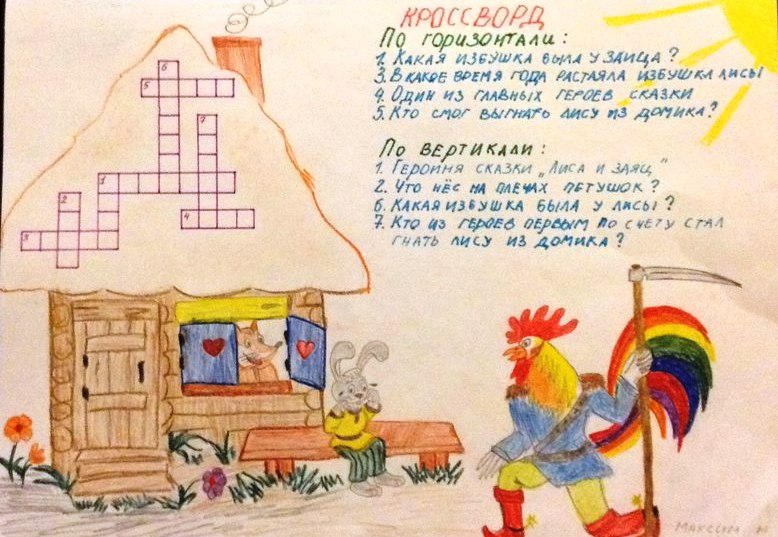 КРОССВОРД
ПО ГОРИЗОНТАЛИ:
1. КАКАЯ ИЗБУШКА БЫЛА У ЗАЙЦА?
3. В КАКОЕ ВРЕМЯ ГОДА РАСТАЯЛА ИЗБУШКА ЛИСЫ
4. ОДИН ИЗ ГЛАВНЫХ ГЕРОЕВ СКАЗКИ
5. КТО СМОГ ВЫГНАТЬ ЛИСУ ИЗ ДОМИКА?
ПО ВЕРТИКАЛИ:
1. ГЕРОИНЯ СКАЗКИ „ЛИСА И ЗАЯЦ"
2. ЧТО НЁС НА ПЛЕЧАХ ПЕТУШОК?
6. КАКАЯ ИЗБУШКА БЫЛА У ЛИСЫ?
7. КТО ИЗ ГЕРОЕВ ПЕРВЫМ ПО СЧЕТУ СТАЛ
ГНАТЬ ЛИСУ ИЗ ДОМИКА?
6
5
7
1
2
4
3
МАКСИМ Н